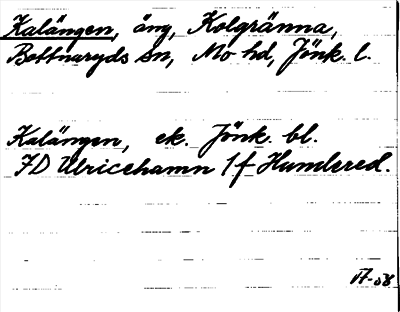 Kalängen, äng, Kolgränna,
Bottnaryds sn, Mo hd, Jönk. l.
Kalängen, ek. Jönk. bl.
7D Ulricehamn 1f Humlered.